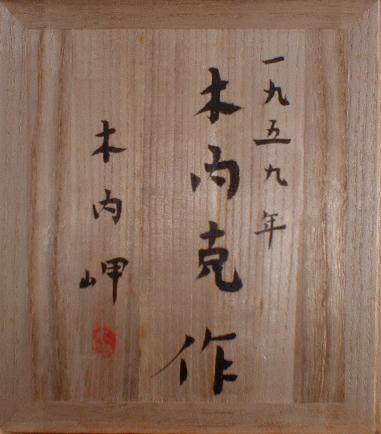 一九五九年
木内克作
木内岬